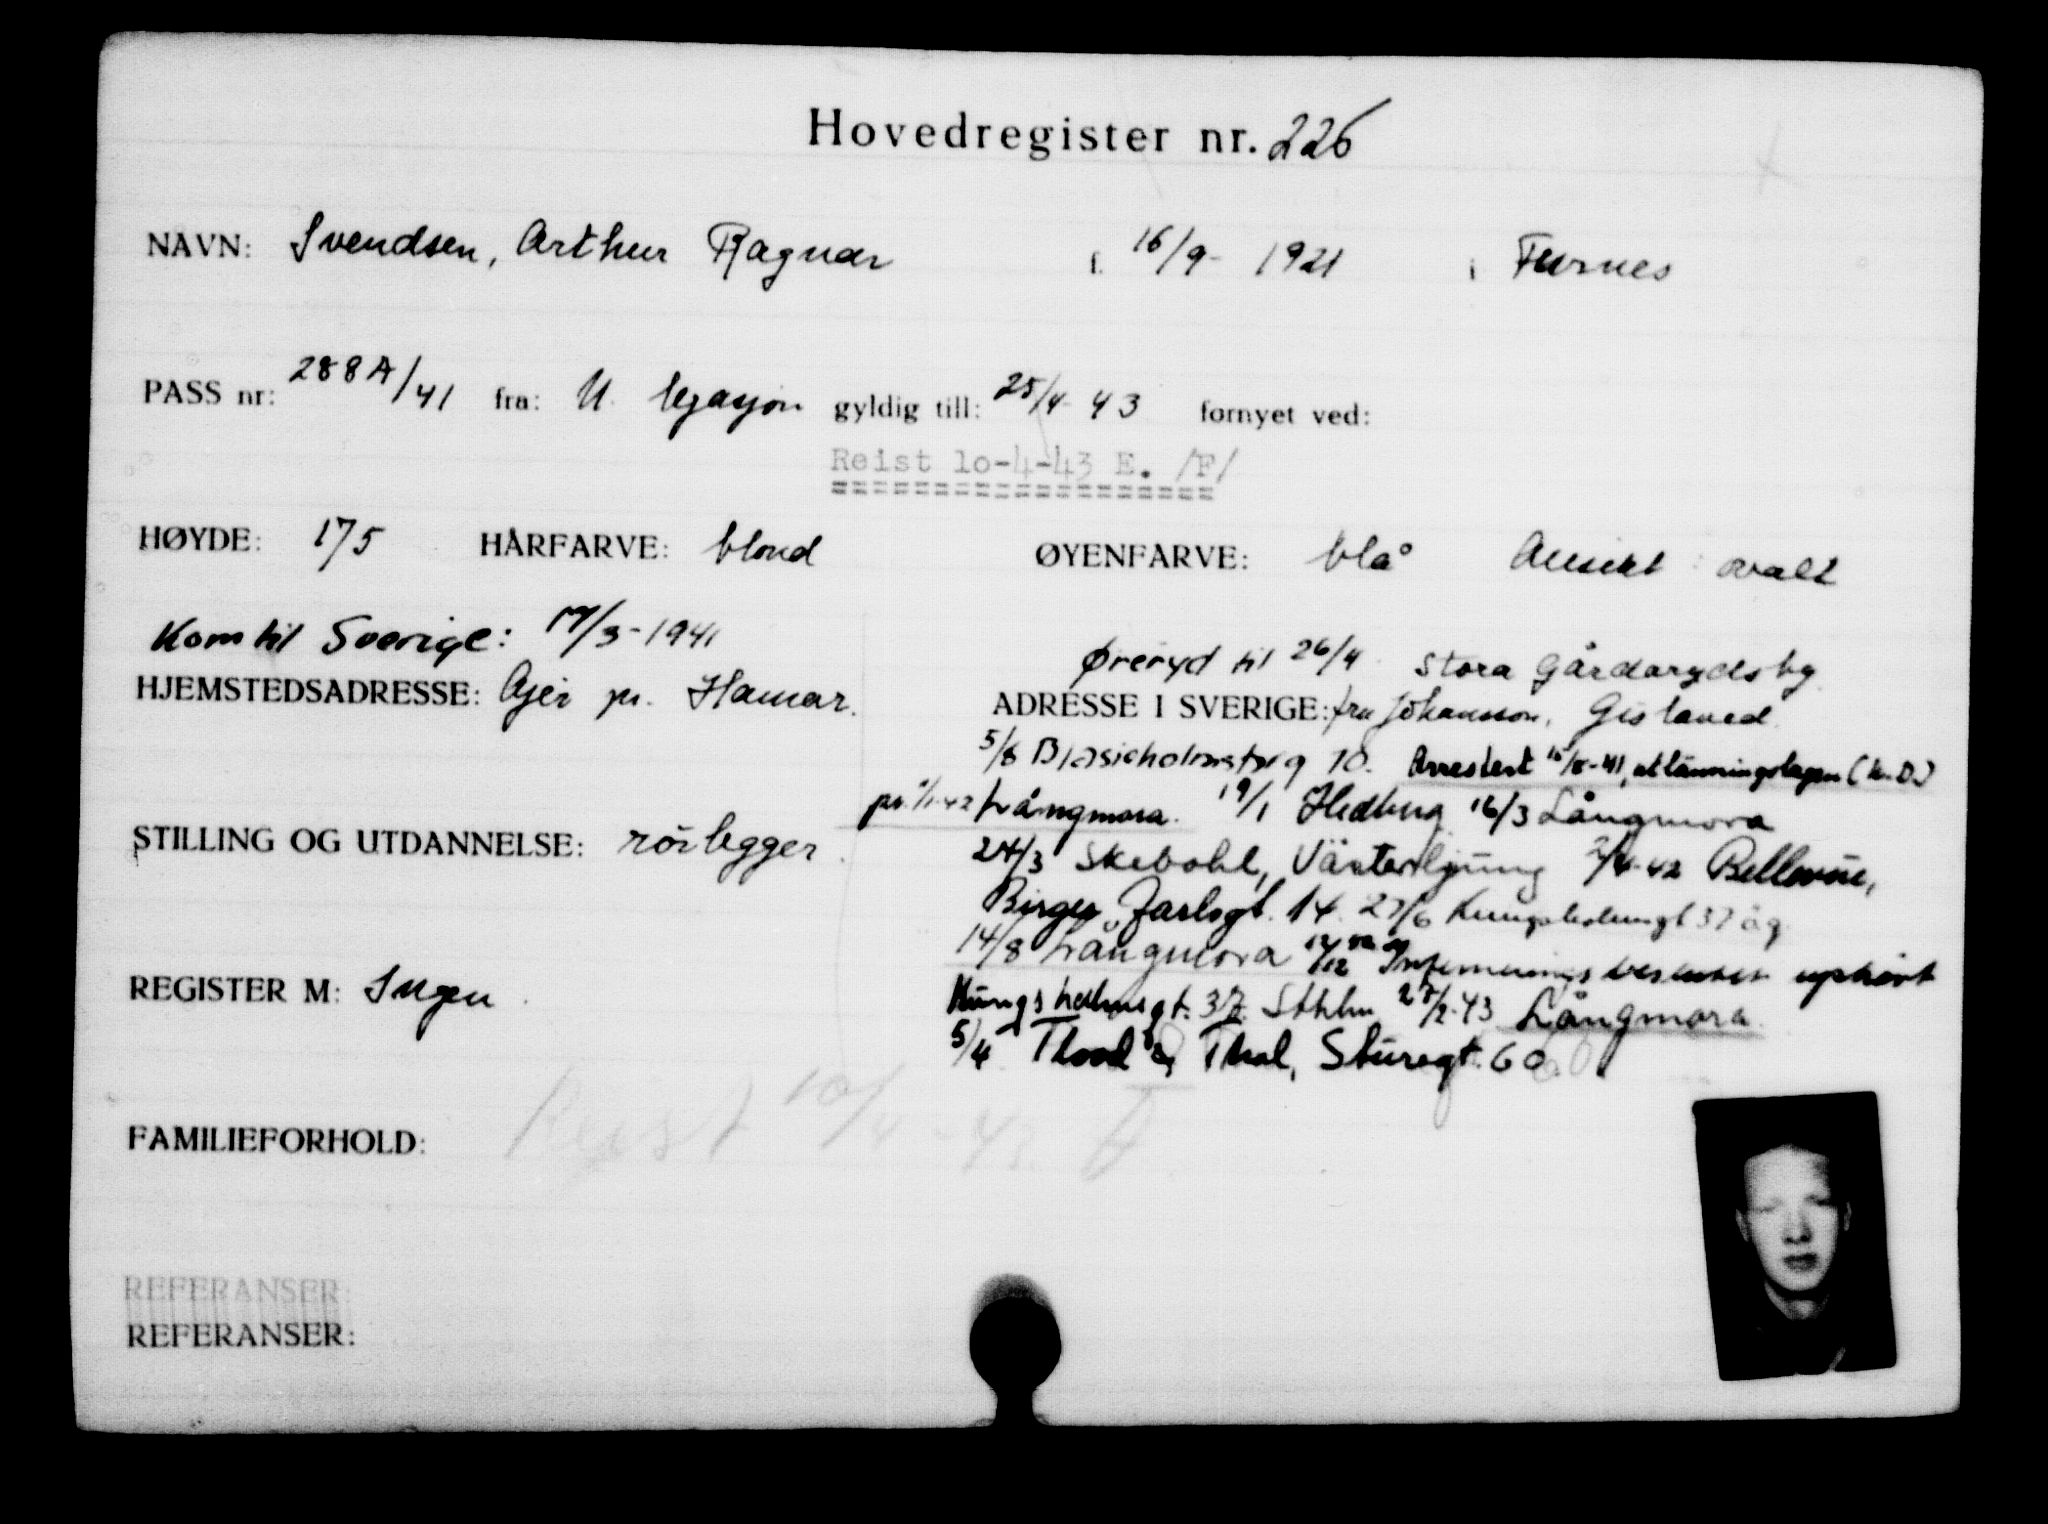 Hovedregister nr. 226
NAVN: Svendsen, Arthur Ragnar f. 16/9- 1921 i Furnes
PASS nr: 288A/41 fra: U. legasjon gyldig till: 25/4- 43 fornyet ved:
Reist 10-4-43 E. /F/
HØYDE: 175 HÅRFARVE: blond ØYENFARVE: blå Ansikt: ovalt
Kom til Sverige: 17/3-1941
Øreryd til 26/4 Stora Gårdarydsby
HJEMSTEDSADRESSE: pr. Hamar.
ADRESSE I SVERIGE: fru Johansson, Gislaved.
5/8 Blasieholmstorg 10. Arrestert utlänningslagen (K.D.)
pr. Långmora. 19/1 Hedberg 16/3 Långmora
STILLING OG UTDANNELSE: rörlegger
24/3 Skebohl, Västerljung Bellevue,
Birger Jarlsgt. 14. 27/6 Kungsholmsgt 37 ög
14/8 Långmora Interneringsbeslutet uphört
REGISTER M: Ingen
Kungsholmsgt. 37 Sthlm 27/2-43 Långmora
5/4 Thool, Sturegt. 60
FAMILIEFORHOLD: Reist 10/4-43. F
REFERANSER:
REFERANSER: